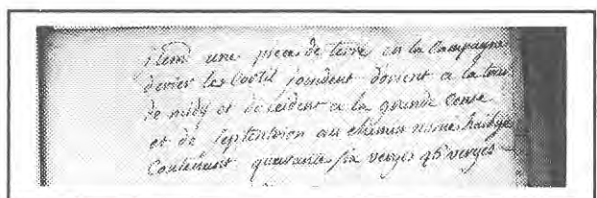 item une piece de terre en la Campagne
derier les Cortil joindent dorient a la
de midy et docident a la grande Cense
et de septentrion au chemin nomé
Contenant quarante six verges 46 verges